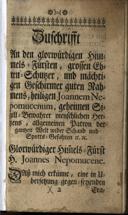 Zuschrifft
An den glorwürdigen Him-
mels-Fürsten, grossen Eh-
ren-Schützer, und mächti-
gen Geschirmer guten Nah-
mens, heiligen Joannem Ne-
pomucenum, geheimen Sy-
gill-Bewahrer menschlichen Her-
zens, allgemeinen Patron der
ganzen Welt wider Schand und
Spotts-Gefahren ꝛc. ꝛc.
Glorwürdiger Himmels-Fürst
H. Joannes Nepomucene.
Daß mich erkühne, eine in Ü-
bersetzung gegen